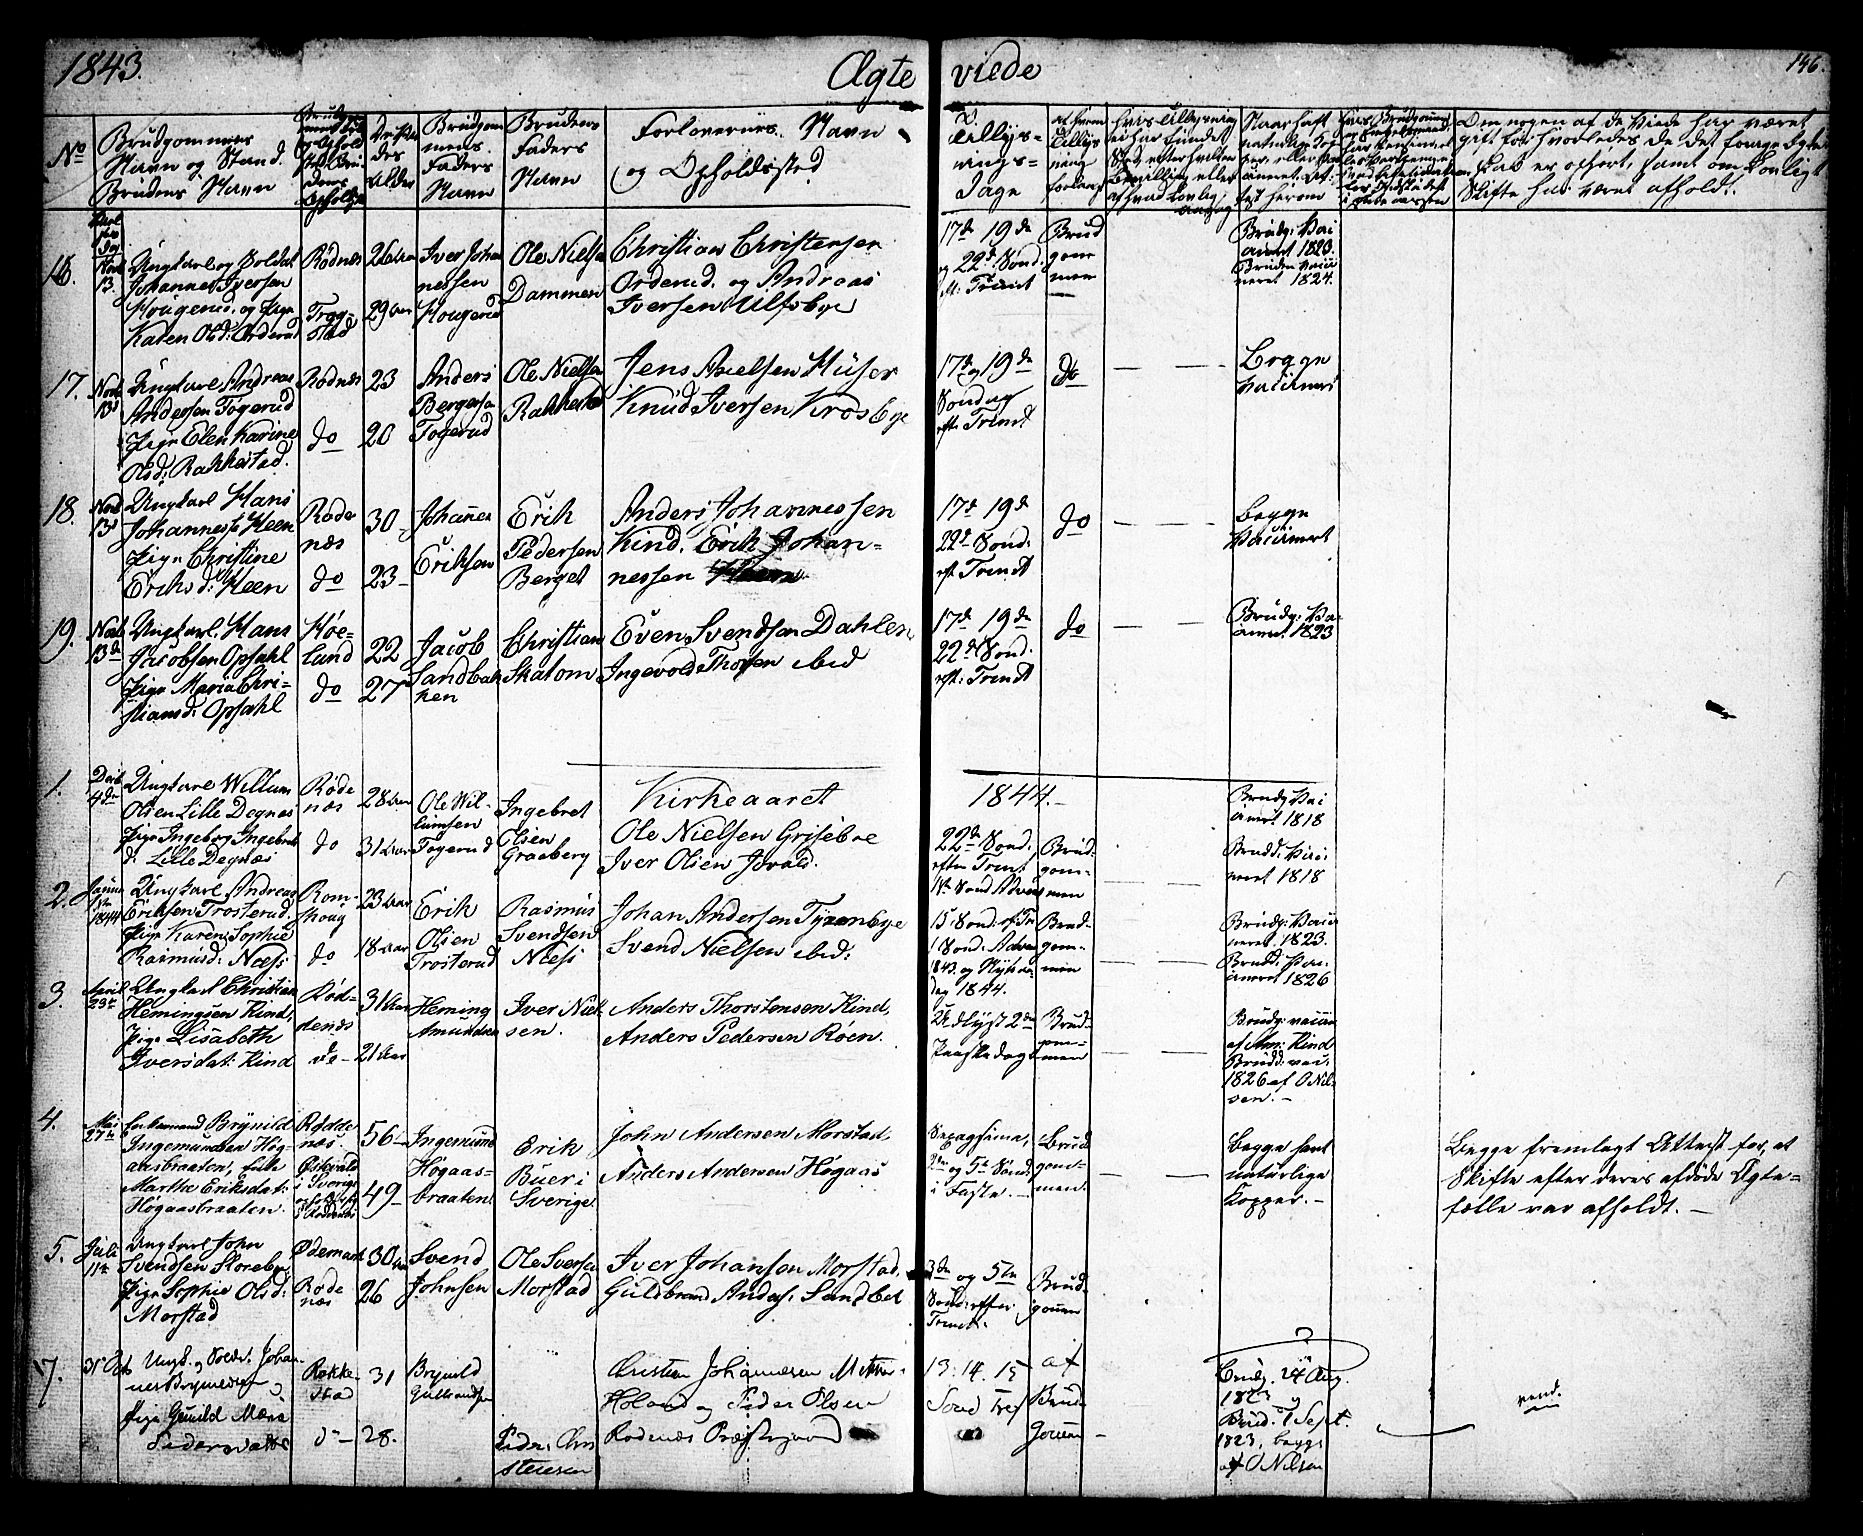 1843.
Ægte viede
146.
No
Brudgommens
Navn og Stand.
Brudens Navn
Deres
Alder
Brudgom
mens
Faders
Navn
Brudens
Faders
Navn
Forlovernes Navn
og Opholdssted
Tillys-
nings-
Dage
af hvem
Tillys
ning
forlangt
Om nogen af de Viede har været
gift før, hvorledes det forrige Ægte-
skab er ophørt, samt om lovligt
Skifte har været afholdt.
16.
Novb
13.
Ungkarl og Soldat
Johannes Iversen
Hougerud og Pige
Karen Olsd: Orderud
Rødnes
Trøg-
stad
26 Aar
29 Aar
Iver Johan
nessen
Hougerud
Ole Nielsen
Dammen
Christian Christensen
Orderud og Andreas
Iversen Ulfsbye
17de 19de
og 22de Sønd:
eft: Trinit
Brud
gom
men
Brudg: vac
ineret 1823.
Bruden vacci
neret 1824.
17.
Novb
13d
Ungkarl Andreas
Andersen Togerud
Pige Elen Karine
Olsd: Rakkestad.
Rødnes
do
23
20
Anders
Bergersen
Togerud
Ole Nielsen
Rakkestad
Jens Axelsen Huser
Knud Iversen Krosbye
17de og 19de
Søndag
eft: Trinit
do
Begge
vacineret
18.
Novb
13d
Ungkarl Hans
Johanness: Heen
Pige Christine
Eriksd: Heen
Røde
næs
do
30
23
Johannes
Eriksen
Erik
Pedersen
Berget
Anders Johannessen
Kind. Erik Johan=
nessen
17de 19de
22de Sønd.
eft: Trinit
do
Begge
vacineret
19.
Novb
13de
Ungkarl Hans
Jacobsen Opsahl
Pige Maria Chri-
stiansd: Opsahl
Høe-
lund
do
22
27
Jacob
Sandbak
ken
Christian
Skatom
Even Svendsen Dahlen,
Ingevold Thorsen ibid
17de 19de
22de Sønd.
eft: Trinit
do
Brudg: va-
cineret 1823
Kirkeaaret 1844.
1.
Decbr
4de
Ungkarl Willum
Olsen Lille Degnæs
Pige Ingeborg Ingebret
d: Lille Degnæs
Røde
næs
do
28 Aar
31 Aar
Ole Wil-
lumsen
Togerud
Ingebret
Olsen
Graaberg
Ole Nielsen Grisebøe
Iver Olsen Jovald.
22de Sønd:
efter Trinit
1ste Sønd Advent
Brud-
gom-
men
Brudg: vac
ineret 1818
Brudd: vaci
neret 1818
2.
1844
Ungkarl Andreas
Eriksen Trosterud.
Pige Karen Sophie
Rasmusd: Næss
Rom-
skoug
do
23 Aar
18 Aar
Erik
Olsen
Trosterud
Rasmus
Svendsen
Næss
Johan Andersen Tyrenbye
Svend Nielsen ibid:
15: Sønd. ef: Tr
1 Sønd. Adven
1843. og Nytaars
dag 1844.
Brud-
gom-
men
Brudg: vacci
neret 1823.
Brudd: vac-
cineret 1826
3.
April
23de
Ungkarl Christian
Hemingsen Kind,
Pige Lisabeth
Iversdat: Kind
Rød-
denæs
do
31 Aar
21 Aar
Heming
Amundsen
Iver Niel
sen.
Anders Thorstensen Kind,
Anders Pedersen Røen.
Udlyst 2den
Paaskedag
Brud-
gom-
men
Brudg: vaccin
af Am: Kind
Brudd: vac:
1826 af O Nil-
sen.
4.
Mai
27de
Enkemand Brynild
Ingemundsen Høg-
aasbraaten, Enke
Marthe Eriksdat:
Høgaasbraaten.
Rødde
næs.
i Sverige
56
49
Ingemund
Høgaas-
braaten
Erik
Buer i
Sverige
John Andersen Morstad,
Anders Andersen Høgaas
Sexagesima,
og 5te Sønd:
i Faste.
Brud
gom-
men.
Begge havt
naturlige
Kopper.
Begge fremlagt Attest for, at
Skifte efter deres afdøde Ægte-
fælle var afholdt.
5.
Juli
11te
Ungkarl John
Svendsen Storebye
Pige Sophie Olsd:
Morstad
Ødemark
Røde
næs
30 Aar
26
Svend
Johnsen
Ole Svensen
Morstad
Iver Johansen Morstad,
Guldbrand Anders: Sandbek
3de og 5te
Sønd: efter
Trinit.
Brud-
gommen
7.
31 Oct
Ungk. og Soldr. Johan-
nes Brynildsen og
Pige Gunild Marie
Pedersdatter
Rakke-
stad
do
31
28.
Brynild
Gulbrandsen
Peder Chri
stensen
Christen Johannesen
Holand og Peder Olsen
Rødenæs Præstegaard
13. 14. 15
Sønd Tref
af
Brud-
gommen
Brudg. 24 Aug.
1823 og
Brud. 1 Sept.
1823, begge
af O Nilsen